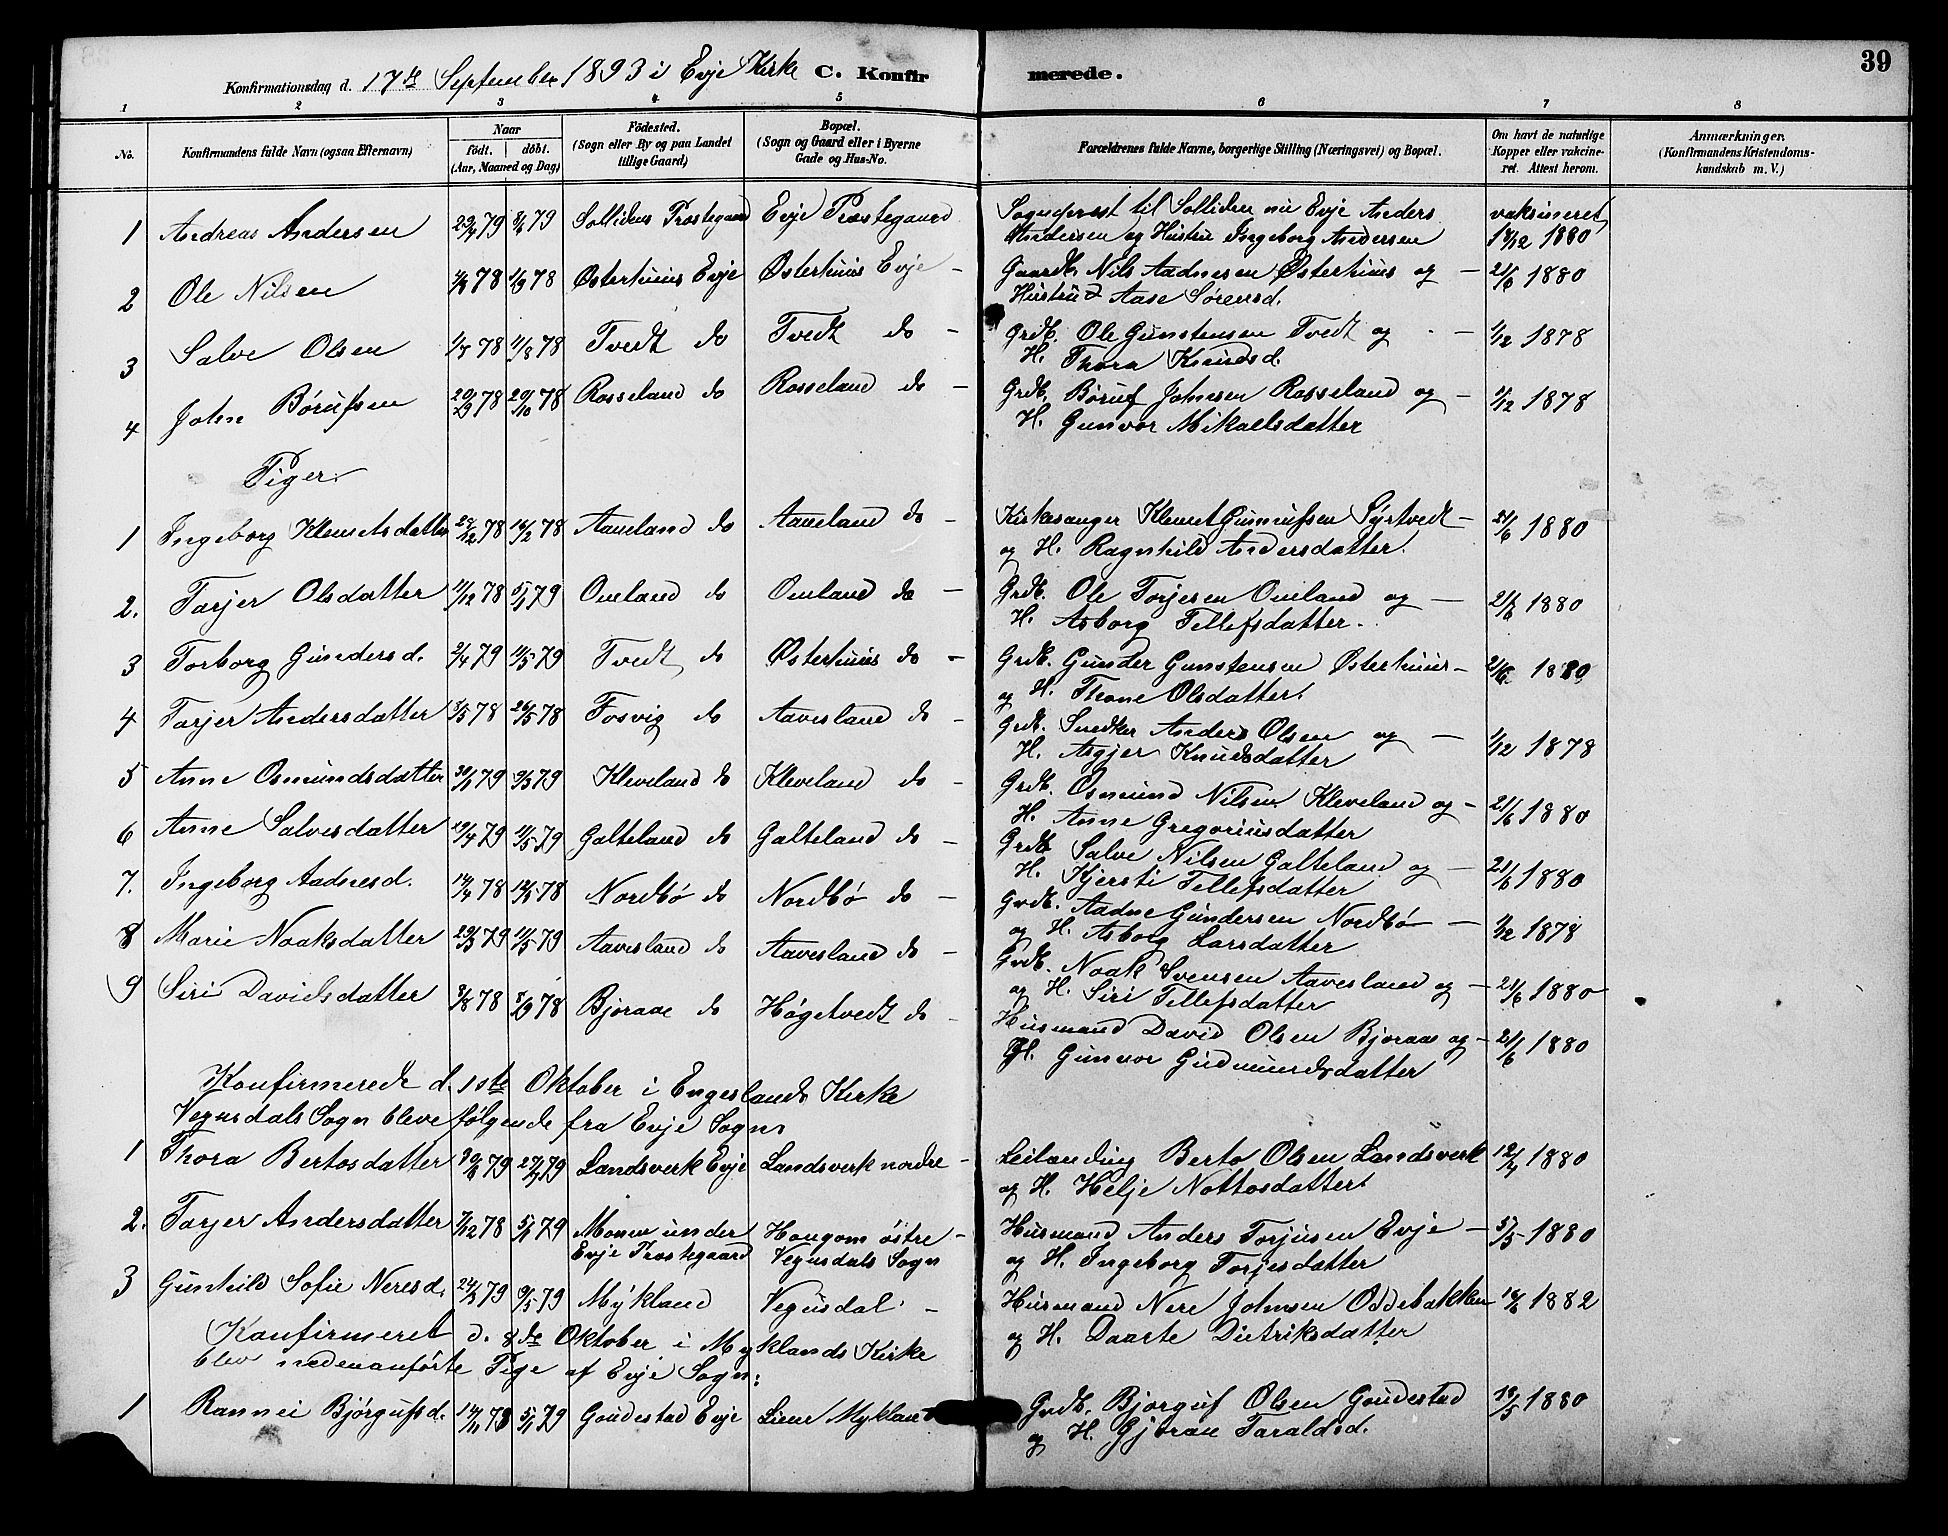 39
Konfirmationsdag d. 17de September 1893 i Evje Kirke C. Konfirmerede.
1 2 3 4 5 6 7 8
No. Konfirmandens fulde Navn (ogsaa Efternavn) Naar født. døbt. (Aar, Maaned og Dag) Fødested. (Sogn eller By og paa Landet tillige Gaard) Bopæl. (Sogn og Gaard eller i Byerne Gade og Hus-No. Forældrenes fulde Navne, borgerlige Stilling (Næringsvei) og Bopæl. Om havt de naturlige Kopper eller vakcineret. Attest herom. Anmærkninger. (Konfirmandens Kristendomskundskab m. V.)
1 Andreas Andersen 79 79 Præstegaard Evje Præstegaard Sogneprest til nu Evje Anders
Andersen og Hustru Ingeborg Andersen vaksineret 1880
2 Ole Nilsen 78 78 Østerhuus Evje Østerhuus Evje - Gaardb. Nils Aadnesen Østerhuus og - 21/6 1880
Hustru Aase Sørensd.
3 Salve Olsen 78 11/8 78 Tvedt do Tvedt do - Grdb. Ole Gunstensen Tvedt og - 1/12 1878
H. Thora Knudsd.
4 John Børufsen 20/9 78 20/10 78 Rosseland do Rosseland do - Grdb. Børuf Johnsen Rosseland og - 1/12 1878
H. Gunvor Mikaelsdatter
Piger.
1 Ingeborg Klemetsdatter 78 78 Aaneland do Aaneland do - Kirkesanger Klemet Gunnufsen Syrtvedt - 21/6 1880
og H. Ragnhild Andersdatter.
2. Tarjer Olsdatter 11/12 78 5/1 79 Omland do Omland do - Grdb. Ole Torjesen Omland og - 21/6 1880
H. Asborg Tellefsdatter.
3 Torborg Gundersd. 2/4 79 11/5 79 Tvedt do Østerhuus do - Grdb. Gunder Gunstensen Østerhuus - 21/6 1880
og H. Thone Olsdatter.
4 Tarjer Andersdatter 78 26/5 78 Fosvig do Aavesland do - Grdb. Snedker Anders Olsen og - 1/12 1878
H. Asgjer Knudsdatter
5 Anne Osmundsdatter 79 79 Kleveland do Kleveland do - Grdb. Osmund Nilsen Kleveland og - 21/6 1880
H. Anne Gregoriusdatter
6 Anne Salvesdatter 19/4 79 11/5 79 Galteland do Galteland do - Grdb. Salve Nilsen Galteland og - 21/6 1880
H. Kjersti Tellefsdatter
7. Ingeborg Aadnesd. 14/4 78 78 Nordbø do Nordbø do - Grdb. Aadne Gundersen Nordbø - 1/12 1878
og H. Asborg Larsdatter
8 Marie Noaksdatter 29/3 79 11/5 79 Aavesland do Aavesland do - Grdb. Noak Svensen Aavesland og - 21/6 1880
og H. Siri Tellefsdatter
9 Siri Davidsdatter 3/8 78 8/9 78 Bjoraae do Høgetvedt do - Husmand David Olsen Bjoraas og - 21/6 1880
H. Gunvor Gudmundsdatter
Konfirmerede d. 1ste Oktober i Engeslands Kirke
Vegusdals Sogn bleve følgende fra Evje Sogn:
1 Thora Bertosdatter 79 79 Landsverk Evje Landsverk nordre - Leilænding Berto Olsen Landsverk 1880
og H. Helje Nottosdatter.
2. Tarjer Andersdatter 7/12 78 5/1 79 Moner under Evje Prestegaard Haugom østre - Vegusdals Sogn Husmand Anders Torjusen Evje - 5/5 1880
og H. Ingeborg Torjesdatter
3 Gunhild Sofie Neresd. 24/3 79 79 Mykland Vegusdal - Husmand Nere Johnsen Oddebakken 1882
og H. Daarte Dietriksdatter
Konfirmeret d. 8de Oktober i Myklands Kirke
blev nedenanførte Pige af Evje Sogn:
1 Rannei Bjørgufsd. 78 5/1 79 Goudestad Evje Lien Mykland Grdb. Bjorguf Olsen Goudestad 1880
og H. Gjoran Taraldsd.